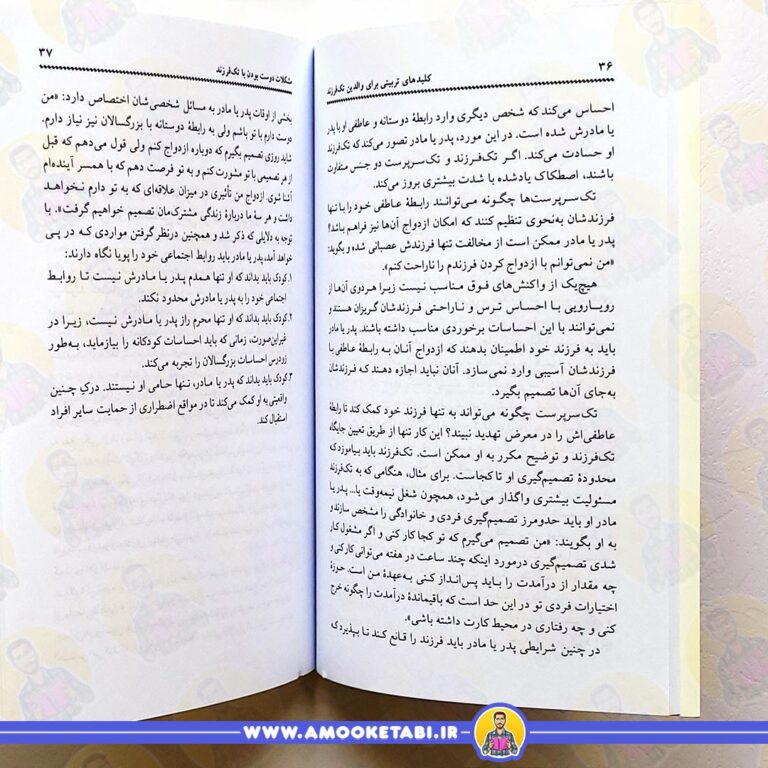 ۳۶
کلیدهای تربیتی برای والدین تک‌فرزند
احساس می‌کند که شخص دیگری وارد رابطهٔ دوستانه و عاطفی او با پدر
یا مادرش شده است. در این مورد، پدر یا مادر تصور می‌کند که تک‌فرزند
او حسادت می‌کند. اگر تک‌فرزند و تک‌سرپرست دو جنس متفاوت
باشند، اصطکاک یادشده با شدت بیشتری بروز می‌کند.
تک‌سرپرست‌ها چگونه می‌توانند رابطهٔ عاطفی خود را با تنها
فرزندشان به‌نحوی تنظیم کنند که امکان ازدواج آن‌ها نیز فراهم باشد؟
پدر یا مادر ممکن است از مخالفت تنها فرزندش عصبانی شده و بگوید:
«من نمی‌توانم با ازدواج کردن فرزندم را ناراحت کنم».
هیچ‌یک از واکنش‌های فوق مناسب نیست زیرا هردوی آن‌ها از
رویارویی با احساس ترس و ناراحتی فرزندشان گریزان هستند و
نمی‌توانند با این احساسات برخوردی مناسب داشته باشند. پدر یا مادر
باید به فرزند خود اطمینان بدهند که ازدواج آنان به رابطهٔ عاطفی با
فرزندشان آسیبی وارد نمی‌سازد. آنان نباید اجازه دهند که فرزندشان
به‌جای آن‌ها تصمیم بگیرد.
تک‌سرپرست چگونه می‌تواند به تنها فرزند خود کمک کند تا رابطهٔ
عاطفی‌اش را در معرض تهدید نبیند؟ این کار تنها از طریق تعیین جایگاه
تک‌فرزند و توضیح مکرر به او ممکن است. تک‌فرزند باید بیاموزد که
محدودهٔ تصمیم‌گیری او تا کجاست. برای مثال، هنگامی که به تک‌فرزند
مسئولیت بیشتری واگذار می‌شود، همچون شغل نیمه‌وقت یا... پدر یا
مادر او باید حدومرز تصمیم‌گیری فردی و خانوادگی را مشخص سازند و
به او بگویند: «من تصمیم می‌گیرم که تو کجا کار کنی و اگر مشغول کار
شدی تصمیم‌گیری درمورد اینکه چند ساعت در هفته می‌توانی کار کنی و
چه مقدار از درآمدت را باید پس‌انداز کنی به‌عهدهٔ من است. حوزهٔ
اختیارات فردی تو در این حد است که باقیماندهٔ درآمدت را چگونه خرج
کنی و چه رفتاری در محیط کارت داشته باشی».
در چنین شرایطی پدر یا مادر باید فرزند را قانع کند تا بپذیرد که
۳۷
مشکلات دوست بودن با تک‌فرزند
بخشی از اوقات پدر یا مادر به مسائل شخصی‌شان اختصاص دارد: «من
دوست دارم با تو باشم ولی به رابطهٔ دوستانه با بزرگسالان نیز نیاز دارم.
شاید روزی تصمیم بگیرم که دوباره ازدواج کنم ولی قول می‌دهم که قبل
از هر تصمیمی با تو مشورت کنم و به تو فرصت دهم که با همسر آینده‌ام
آشنا شوی. ازدواج من تأثیری در میزان علاقه‌ای که به تو دارم نخواهد
داشت و هر سهٔ ما دربارهٔ زندگی مشترک‌مان تصمیم خواهیم گرفت». با
توجه به دلایلی که ذکر شد و همچنین درنظر گرفتن مواردی که در پی
خواهد آمد، پدر یا مادر باید روابط اجتماعی خود را پویا نگاه دارند:
۱. کودک باید بداند که او تنها همدم پدر یا مادرش نیست تا روابط
اجتماعی خود را به پدر یا مادرش محدود نکند.
۲. کودک باید بداند که او تنها محرم راز پدر یا مادرش نیست، زیرا در
غیراین‌صورت، زمانی که باید احساسات کودکانه را بیازماید، به‌طور
زودرس احساسات بزرگسالان را تجربه می‌کند.
۳. کودک باید بداند که پدر یا مادر، تنها حامی او نیستند. درک چنین
واقعیتی به او کمک می‌کند تا در مواقع اضطراری از حمایت سایر افراد
استقبال کند.
WWW.AMOOKETABI.IR